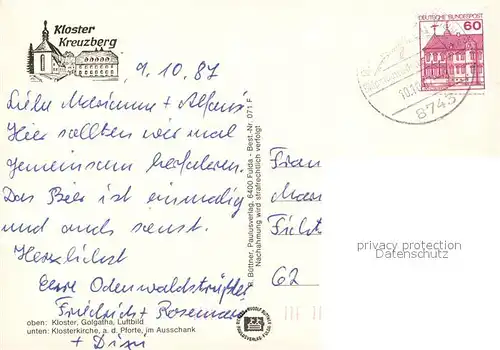 Kloster
Kreuzberg
9.10.87
Liebe Marianne + Alfons
Hier sollten wir mal
gemeinsam herfahren.
Das Bier ist einmalig
und auch sonst.
Herzlichst
Eure
Friedrich + Rosemarie
+ Dixi
oben: Kloster, Golgatha, Luftbild
unten: Klosterkirche, a. d. Pforte, im Ausschank
Büttner, Paulusverlag, 6400 Fulda - Best.-Nr. 071 F
Nachahmung wird strafrechtlich verfolgt
DEUTSCHE BUNDESPOST
60
10.10
8743
Frau
Mar
62
privacy protection
Datenschutz